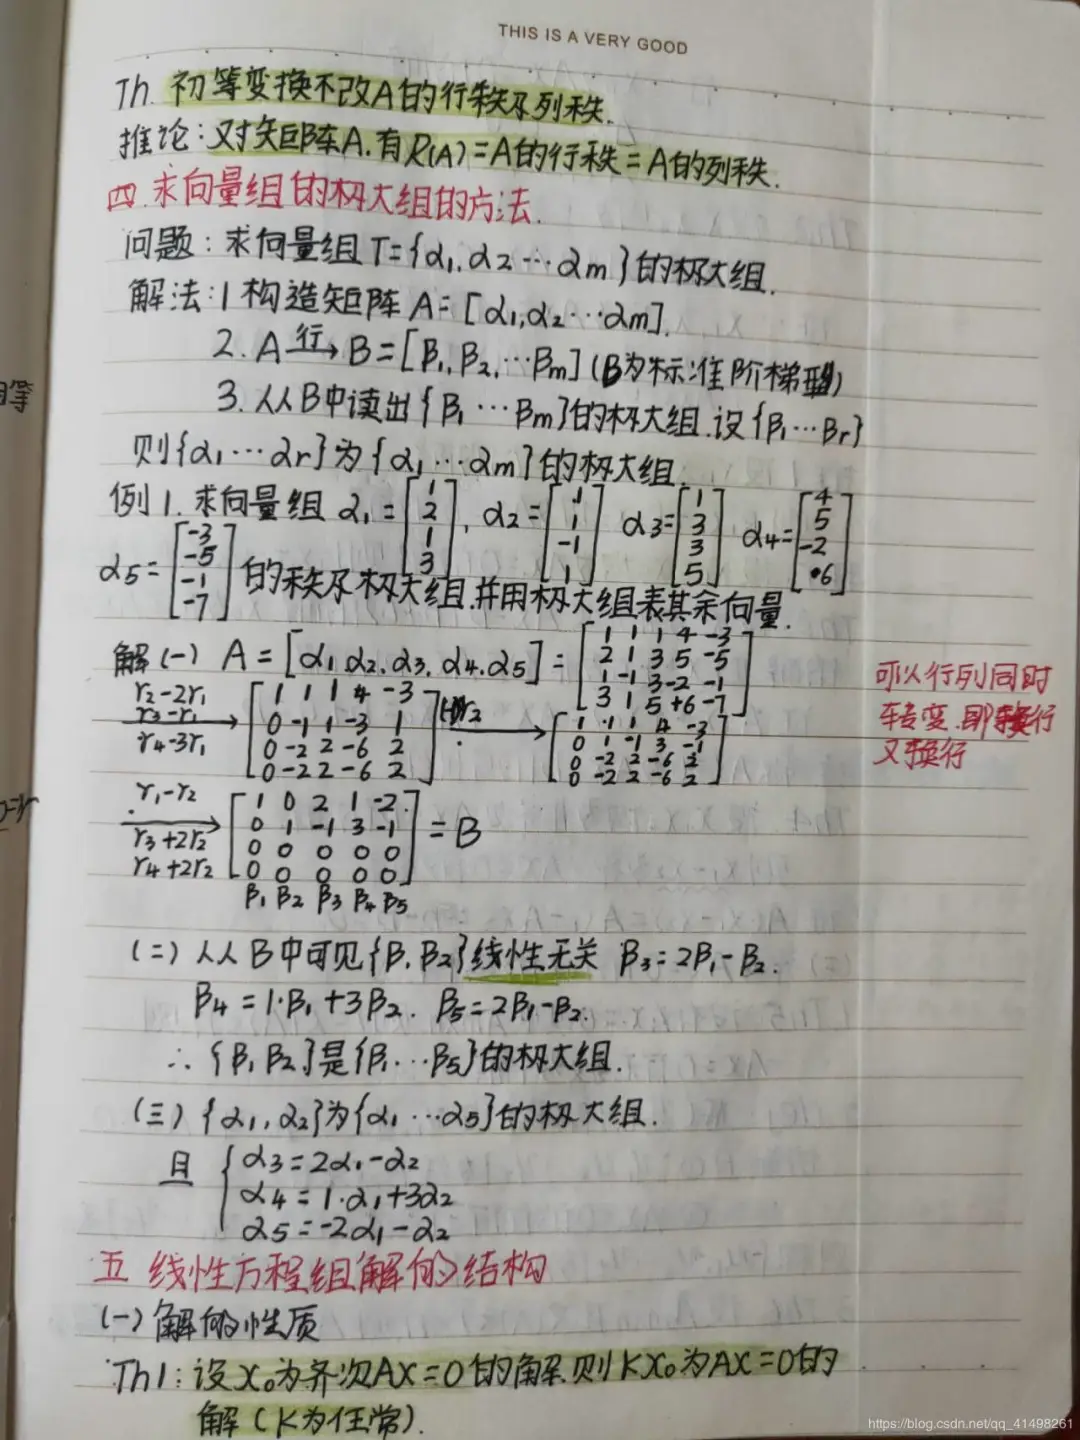 THIS IS A VERY GOOD
Th. 初等变换不改A的行秩及列秩.
推论:对矩阵A.有R(A)=A的行秩=A的列秩.
四.求向量组的极大组的方法.
问题:求向量组T={α₁,α₂…αm}的极大组.
解法:1构造矩阵A=[α₁,α₂…αm].
2.A 行→ B=[β₁,β₂,…βm](B为标准阶梯型)
3.从B中读出{β₁…βm}的极大组.设{β₁…βr}
则{α₁…αr}为{α₁…αm}的极大组.
例1.求向量组α₁=[1 2 1 3],α₂=[1 1 -1 1] α₃=[1 3 3 5] α₄=[4 5 -2 6]
α₅=[-3 -5 -1 -7]的秩及极大组.并用极大组表其余向量.
解(一) A=[α₁,α₂,α₃,α₄,α₅]=[1 1 1 4 -3
2 1 3 5 -5
1 -1 3 -2 -1
3 1 5 +6 -7]
可以行列同时
转变.即换行
又换行
r₂-2r₁
r₃-r₁
r₄-3r₁
→[1 1 1 4 -3
0 -1 1 -3 1
0 -2 2 -6 2
0 -2 2 -6 2]
(-1)r₂
→[1 1 1 4 -3
0 1 -1 3 -1
0 -2 2 -6 2
0 -2 2 -6 2]
r₁-r₂
r₃+2r₂
r₄+2r₂
→[1 0 2 1 -2
0 1 -1 3 -1
0 0 0 0 0
0 0 0 0 0]=B
β₁ β₂ β₃ β₄ β₅
(二)从B中可见{β₁β₂}线性无关 β₃=2β₁-β₂.
β₄=1·β₁+3β₂. β₅=2β₁-β₂.
∴{β₁β₂}是{β₁…β₅}的极大组.
(三){α₁,α₂}为{α₁…α₅}的极大组.
且{α₃=2α₁-α₂
α₄=1·α₁+3α₂
α₅=-2α₁-α₂
五 线性方程组解的结构
(一)解的性质
Th1:设X₀为齐次AX=0的解.则KX₀为AX=0的
解(K为任常).
https://blog.csdn.net/qq_41498261